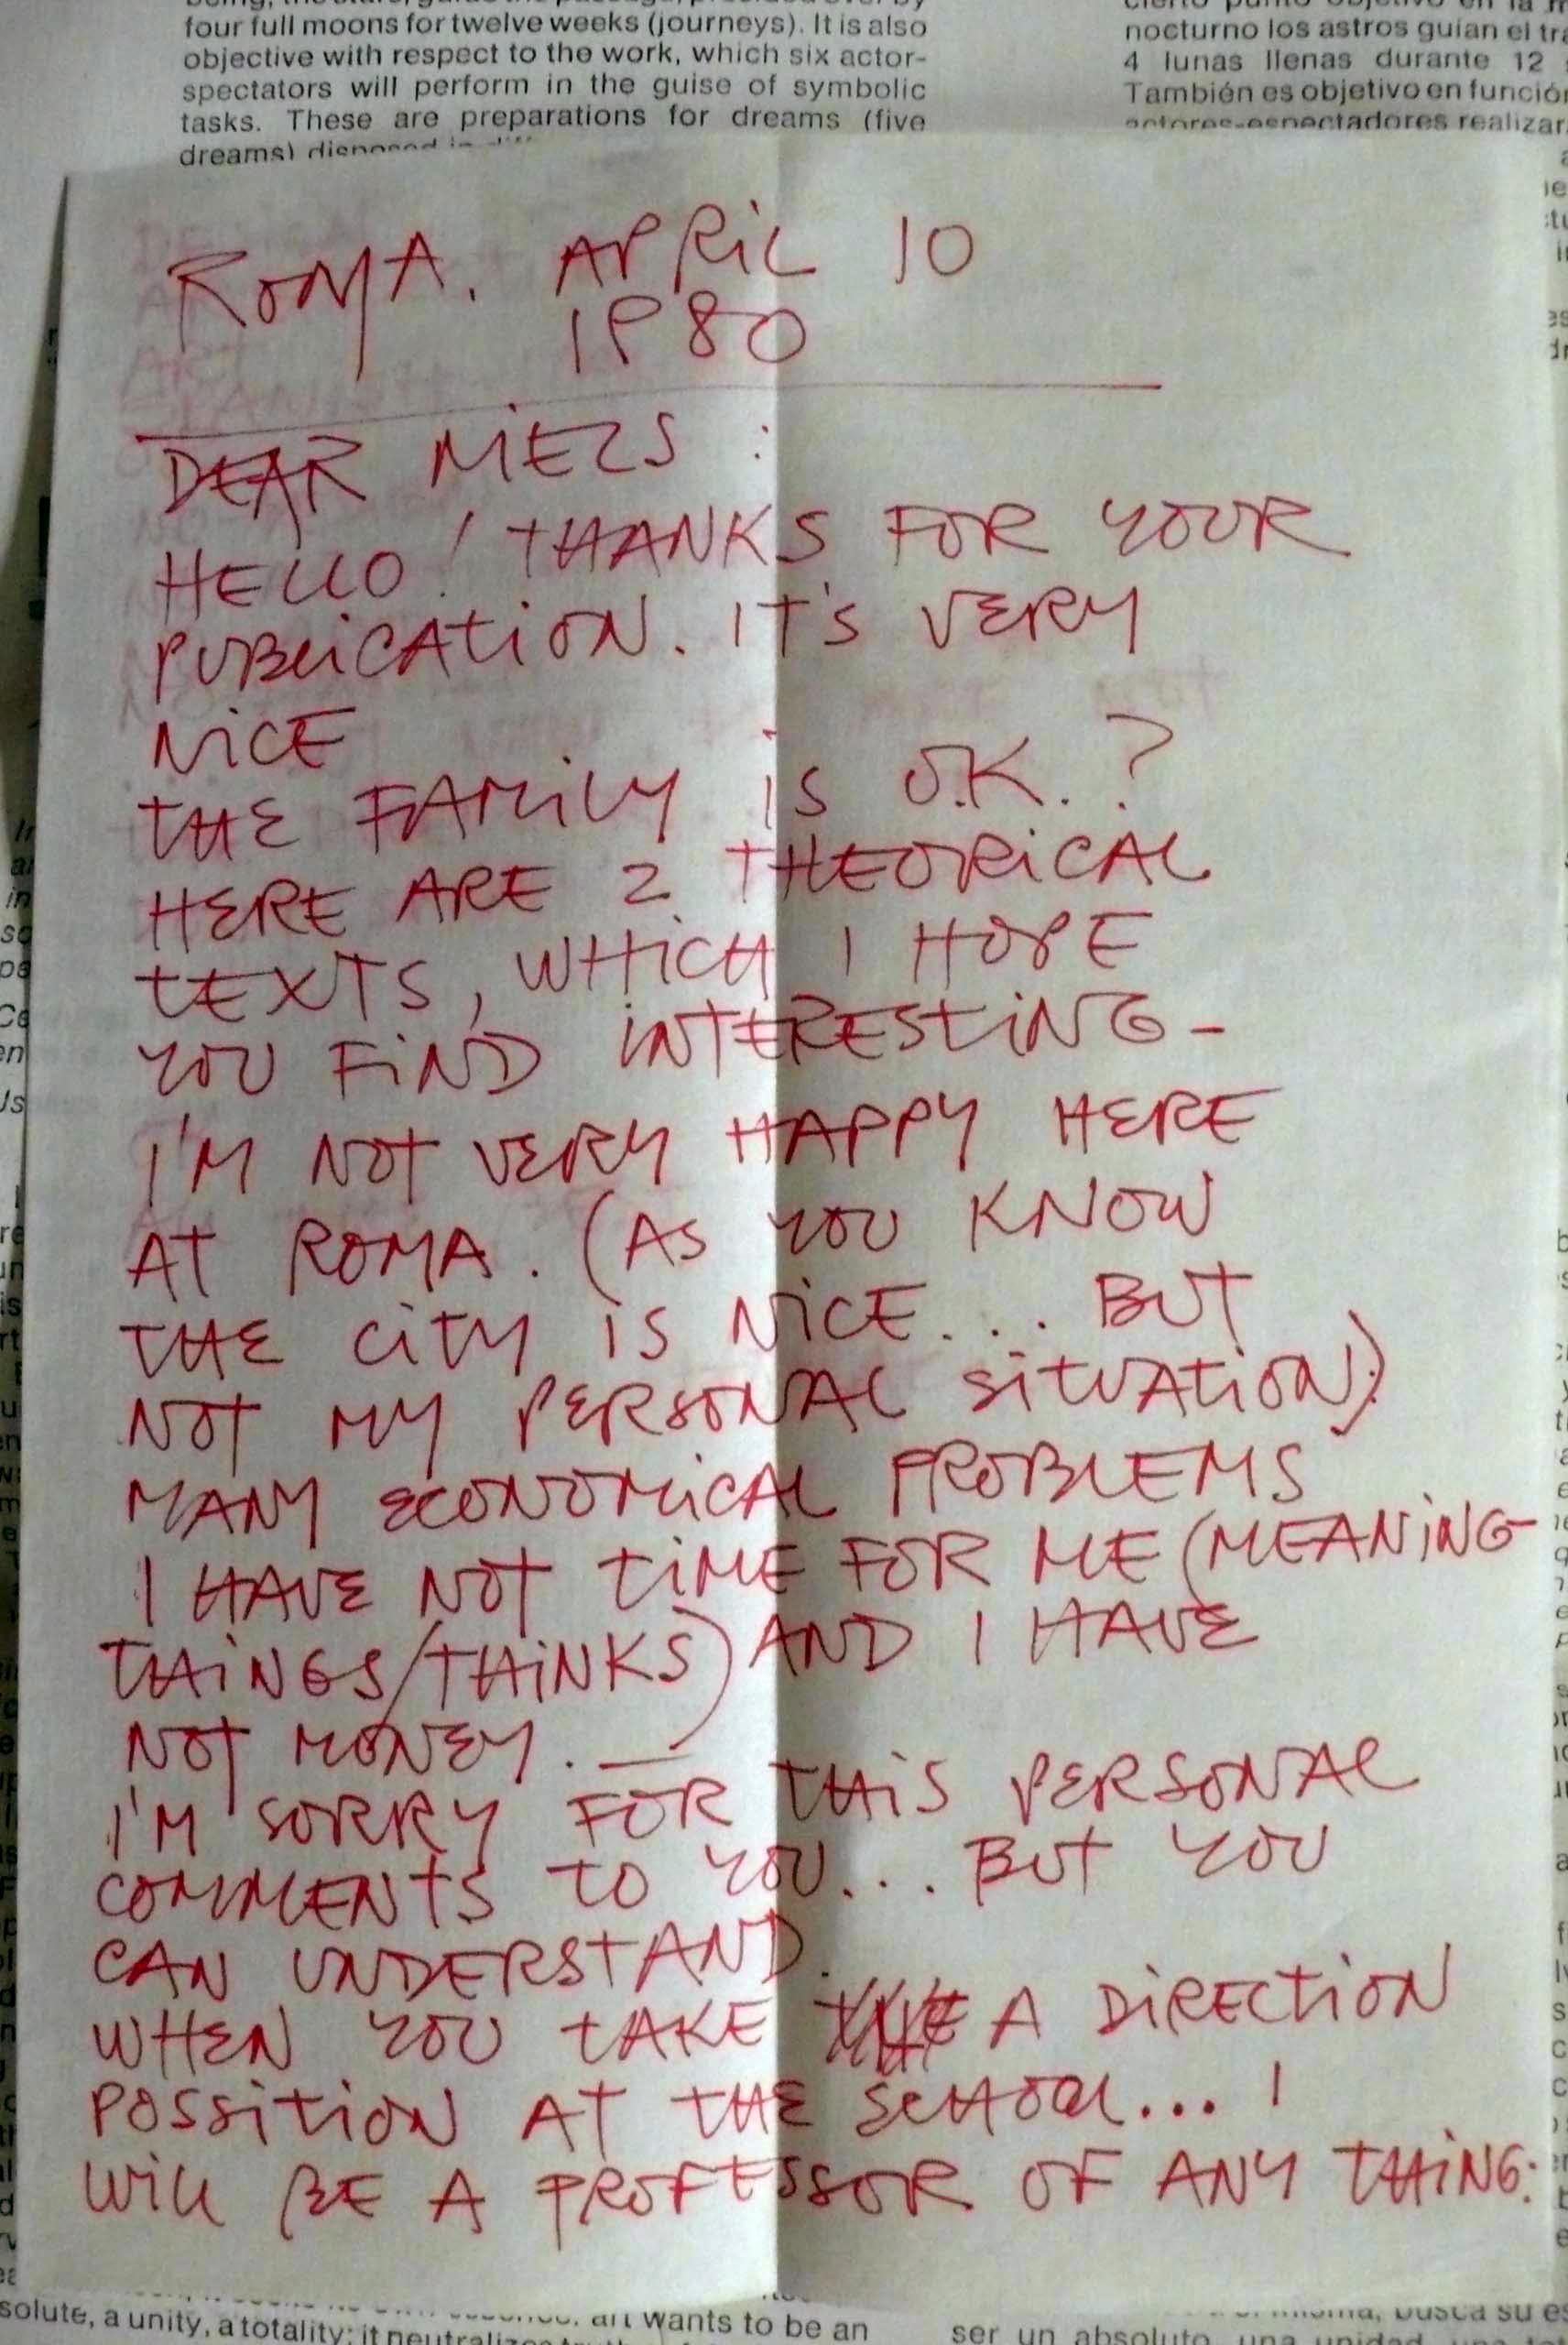 four full moons for twelve weeks (journeys). It is also
objective with respect to the work, which six actor-
spectators will perform in the guise of symbolic
tasks. These are preparations for dreams (five
dreams)
nocturno los astros guian el
4 lunas llenas durante 12
También es objetivo en
actores-espectadores
ROMA. APRIL 10
1980
DEAR MELS :
HELLO! THANKS FOR YOUR
PUBLICATION. IT'S VERY
NICE
THE FAMILY IS O.K. ?
HERE ARE 2 THEORICAL
TEXTS, WHICH I HOPE
YOU FIND INTERESTING -
I'M NOT VERY HAPPY HERE
AT ROMA. (AS YOU KNOW
THE CITY IS NICE... BUT
NOT MY PERSONAL SITUATION)
MANY ECONOMICAL PROBLEMS
I HAVE NOT TIME FOR ME (MEANING
THINGS/THINKS) AND I HAVE
NOT MONEY. —
I'M SORRY FOR THIS PERSONAL
COMMENTS TO YOU... BUT YOU
CAN UNDERSTAND.
WHEN YOU TAKE A DIRECTION
POSSITION AT THE SCHOOL... I
WILL BE A PROFESSOR OF ANY THING:
solute, a unity, a totality; it
art wants to be an
busca su
ser un absoluto, una unidad